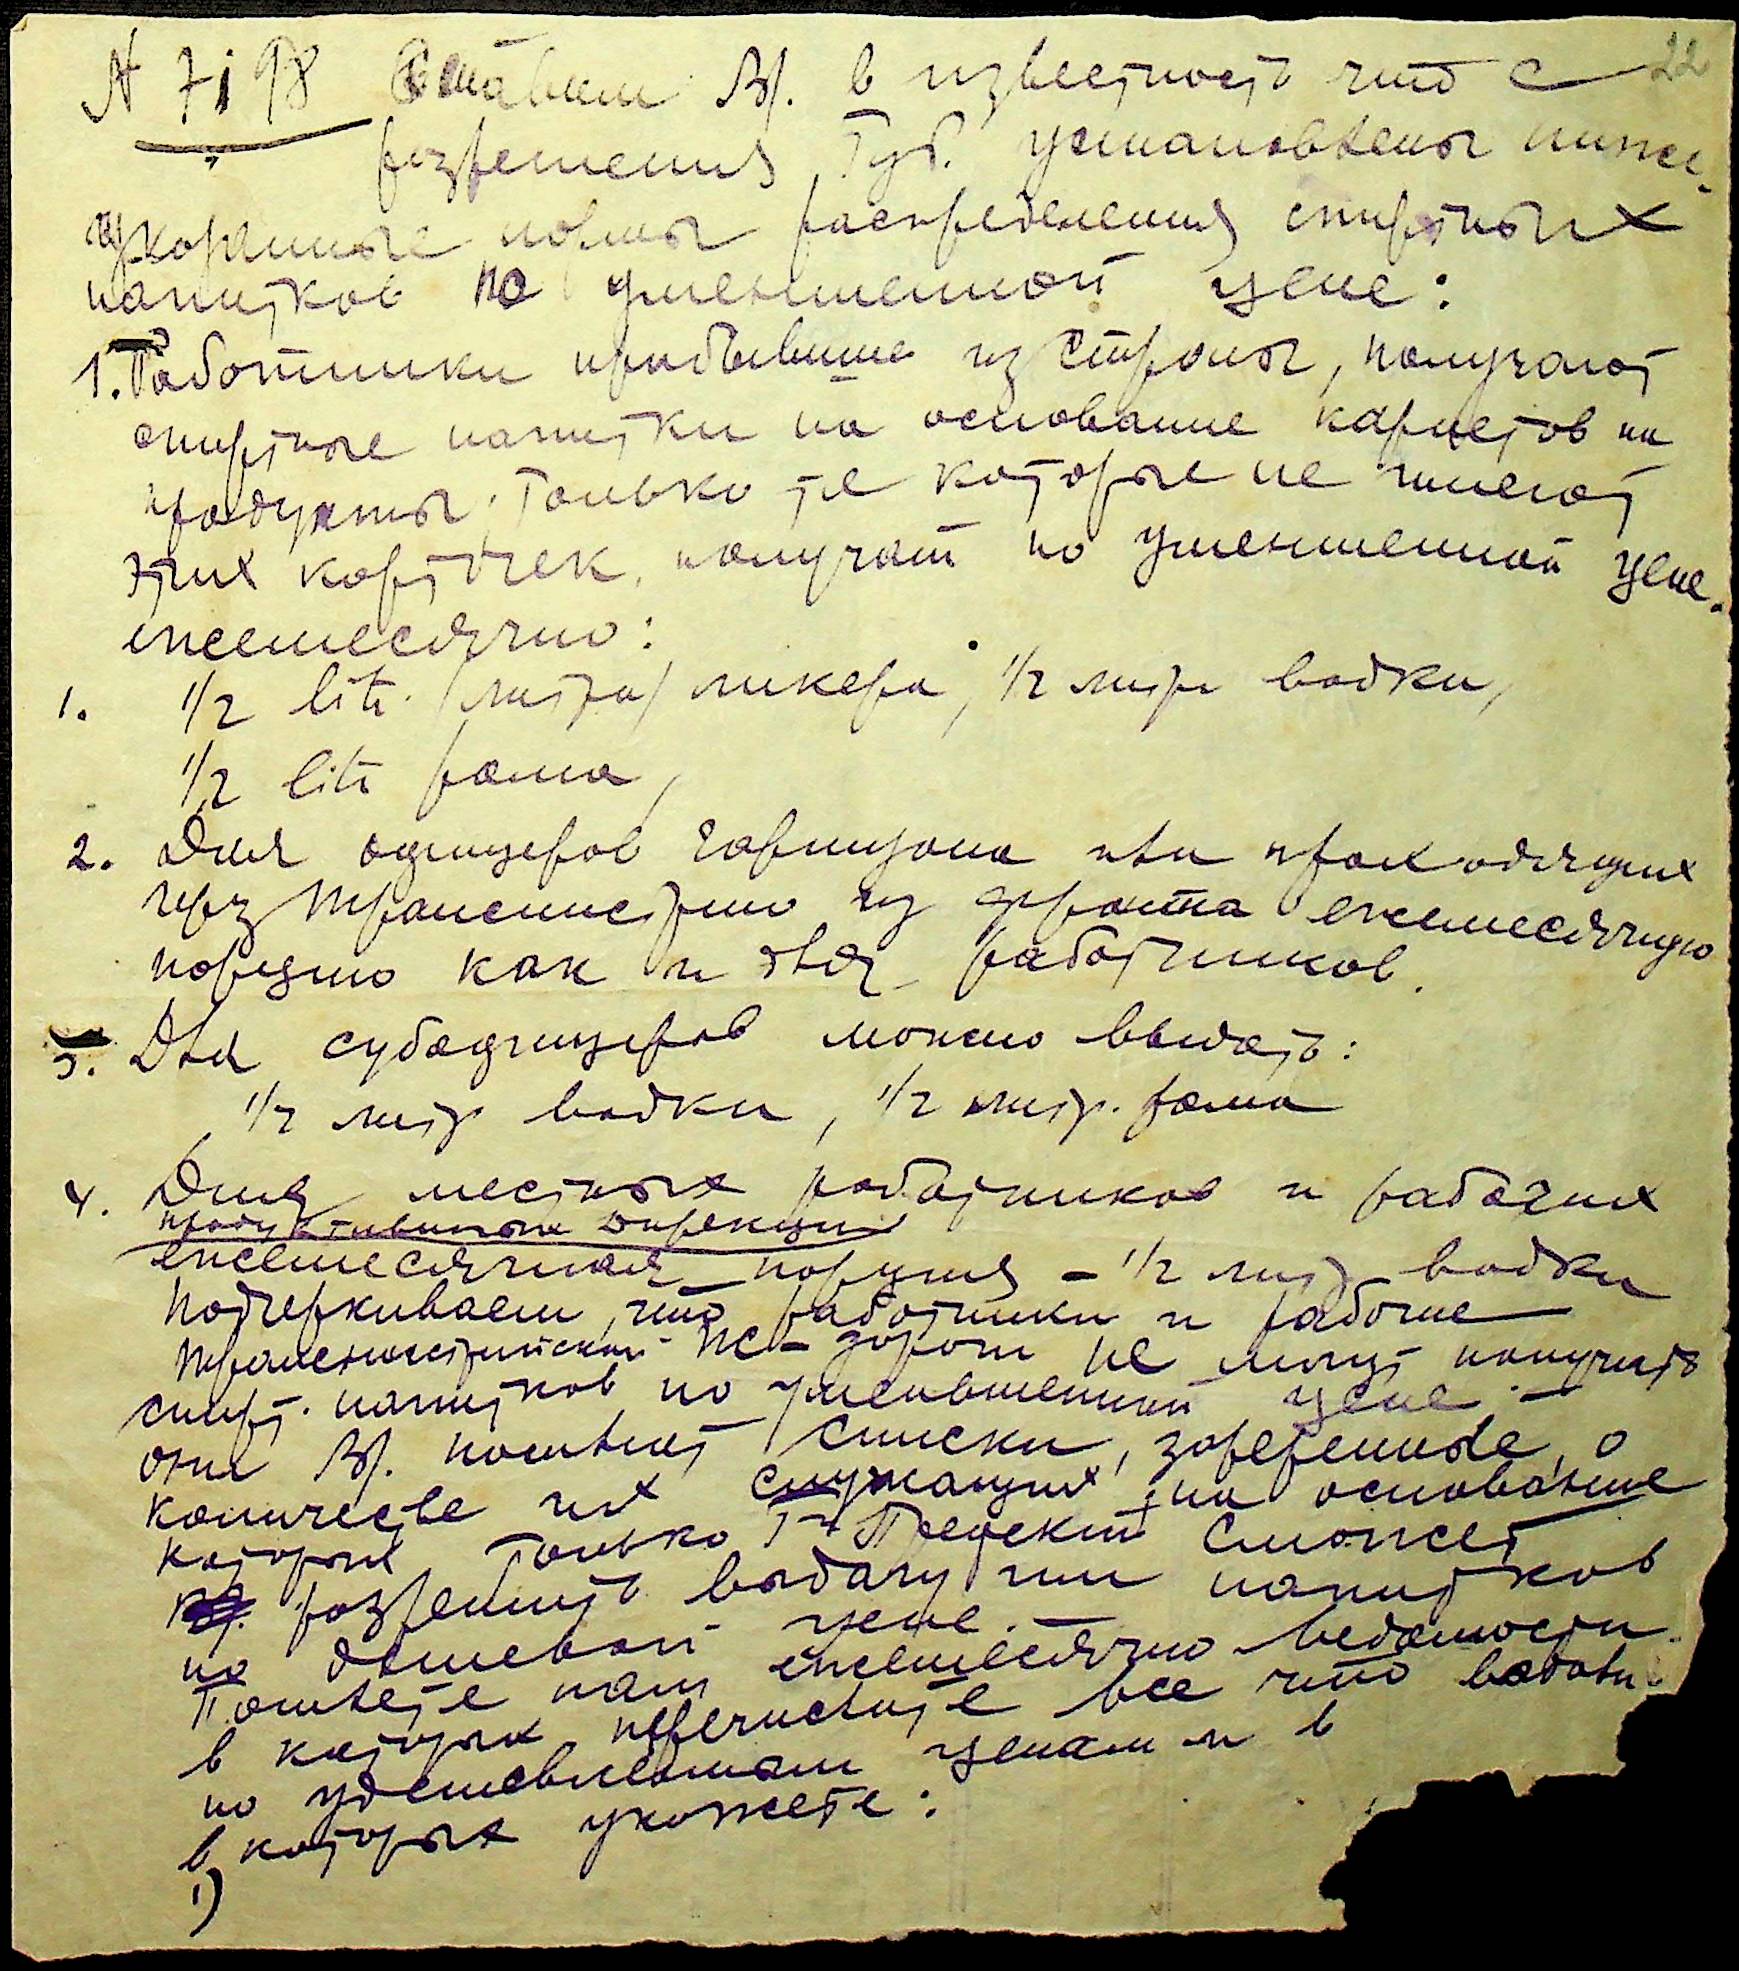 N 7198 Ставим Вр. в известность что с 22
разрешения Губ. установлены ниже-
указанные нормы распределения спиртных
напитков по уменьшенной цене:
1. Работники прибывшие из страны, получают
спиртные напитки на основание карнетов на
продукты. Только те которые не имеют
этих карточек, получат по уменьшенной цене.
ежемесячно:
1. 1/2 litr. /литра/ ликера, 1/2 литр водки,
1/2 litr рома,
2. Для офицеров гарнизона или проходящих
через Транснистрию из фронта ежемесячную
порцию как и для работников.
3. Для субофицеров можно выдать:
1/2 литр водки, 1/2 литр. рома
4. Для местных работников и рабочих
продуктивных дирекции
ежемесячная порция - 1/2 литр водки
Подчеркиваем, что работники и рабочие
Транснистрийской ЖЕ-дороги не могут получить
спирт. напитков по уменьшенной цене. —
они Вр. пошлют списки, заверенные, о
количестве их служащих, на основание
которых только Г-н Префект сможет
разрешить выдачу им напитков
по дешевой цене. —
Пошлете нам ежемесячно ведомости
в которых перечислите все что выдали
по удешевленным ценам и в
в которых укажете:
1)